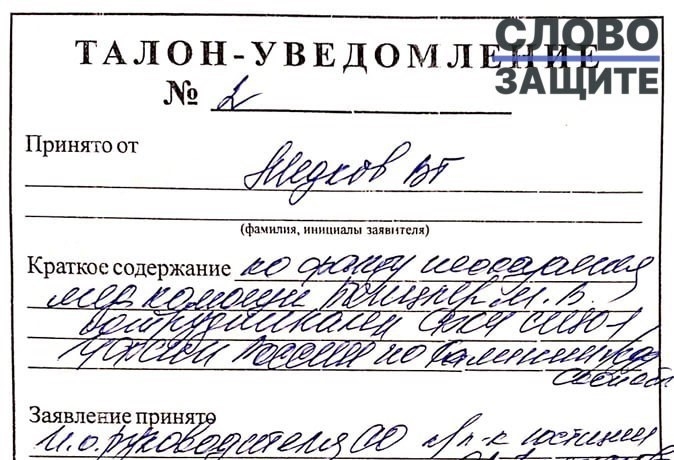 СЛОВО
ЗАЩИТЕ
ТАЛОН-УВЕДОМЛЕНИЕ
№ 2
Принято от
Жедков ВГ
(фамилия, инициалы заявителя)
Краткое содержание по факту неоказания
мер помощи М.В.
сотрудниками СИЗО-1
УФСИН России по Калининград
области
Заявление принято
И.о. руководителя СО п/п-к юстиции